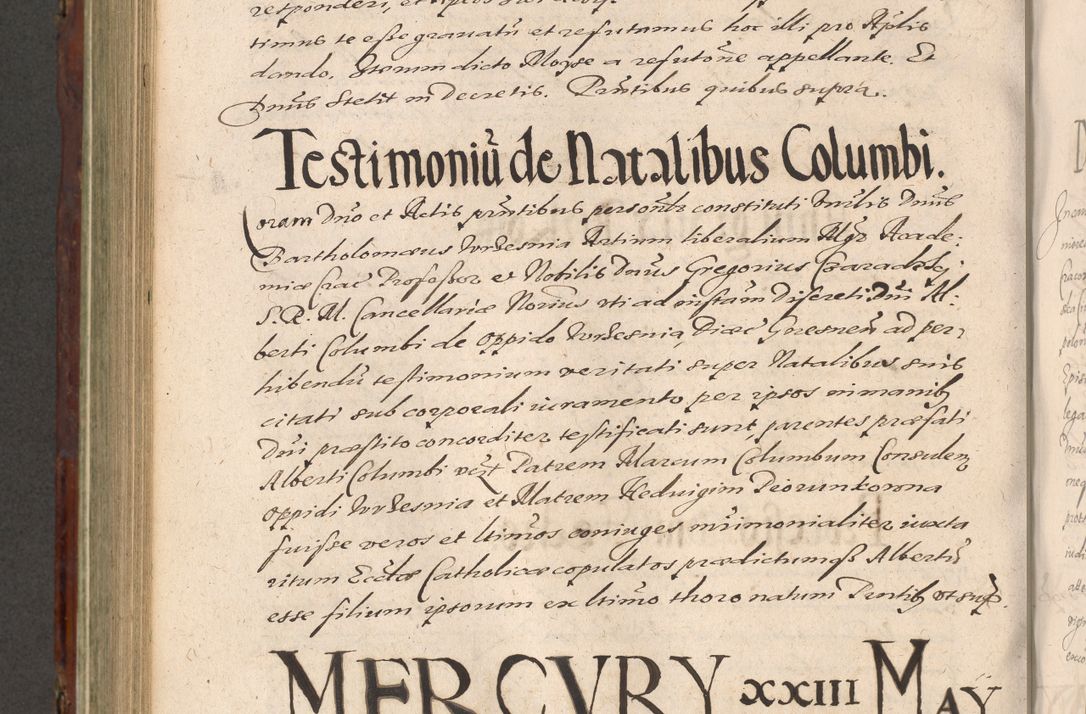 timus te esse grauatũ et refutamus hoc illi pro Aplis
dando. Iterum dicto Moyse a refutoñe appellante. Et
Dnũs stetit in Decretis. Prñtibus quibus supra.
Testimoniũ de Natalibus Columbi.
Coram Dnõ et Actis prñtibus personłr constituti Hnrlis Dnũs
Bartholomæus Wrzesnia Artium liberalium Mgr Acade:
miæ Crac̃ Professor et Nobilis Dnũs Gregorius Czaradzki
S. R. M. Cancellariæ Norius vti ad instam Discreti Dni Al:
berti Columbi de oppido Wrzesnia Diæc Gnesneñ ad per,
hibendũ testimonium veritati super Natalibus suis
citati sub corporali iuramento per ipsos in manib9
Dni præstito concorditer testificati sunt, parentes præfati
Alberti Columbi vczt Patrem Marcum Columbum Consulem
oppidi Wrzesnia et Matrem Heduigim Piorunkowna
fuisse veros et ltimos coniuges mrimonialiter iuxta
ritum Ecclæ Catholicæ copulatos prædictumq3 Albertũ
esse filium ipsorum ex ltimo thoro natum Prntib9 vt sup.
MERCVRY XXIII MAŸ